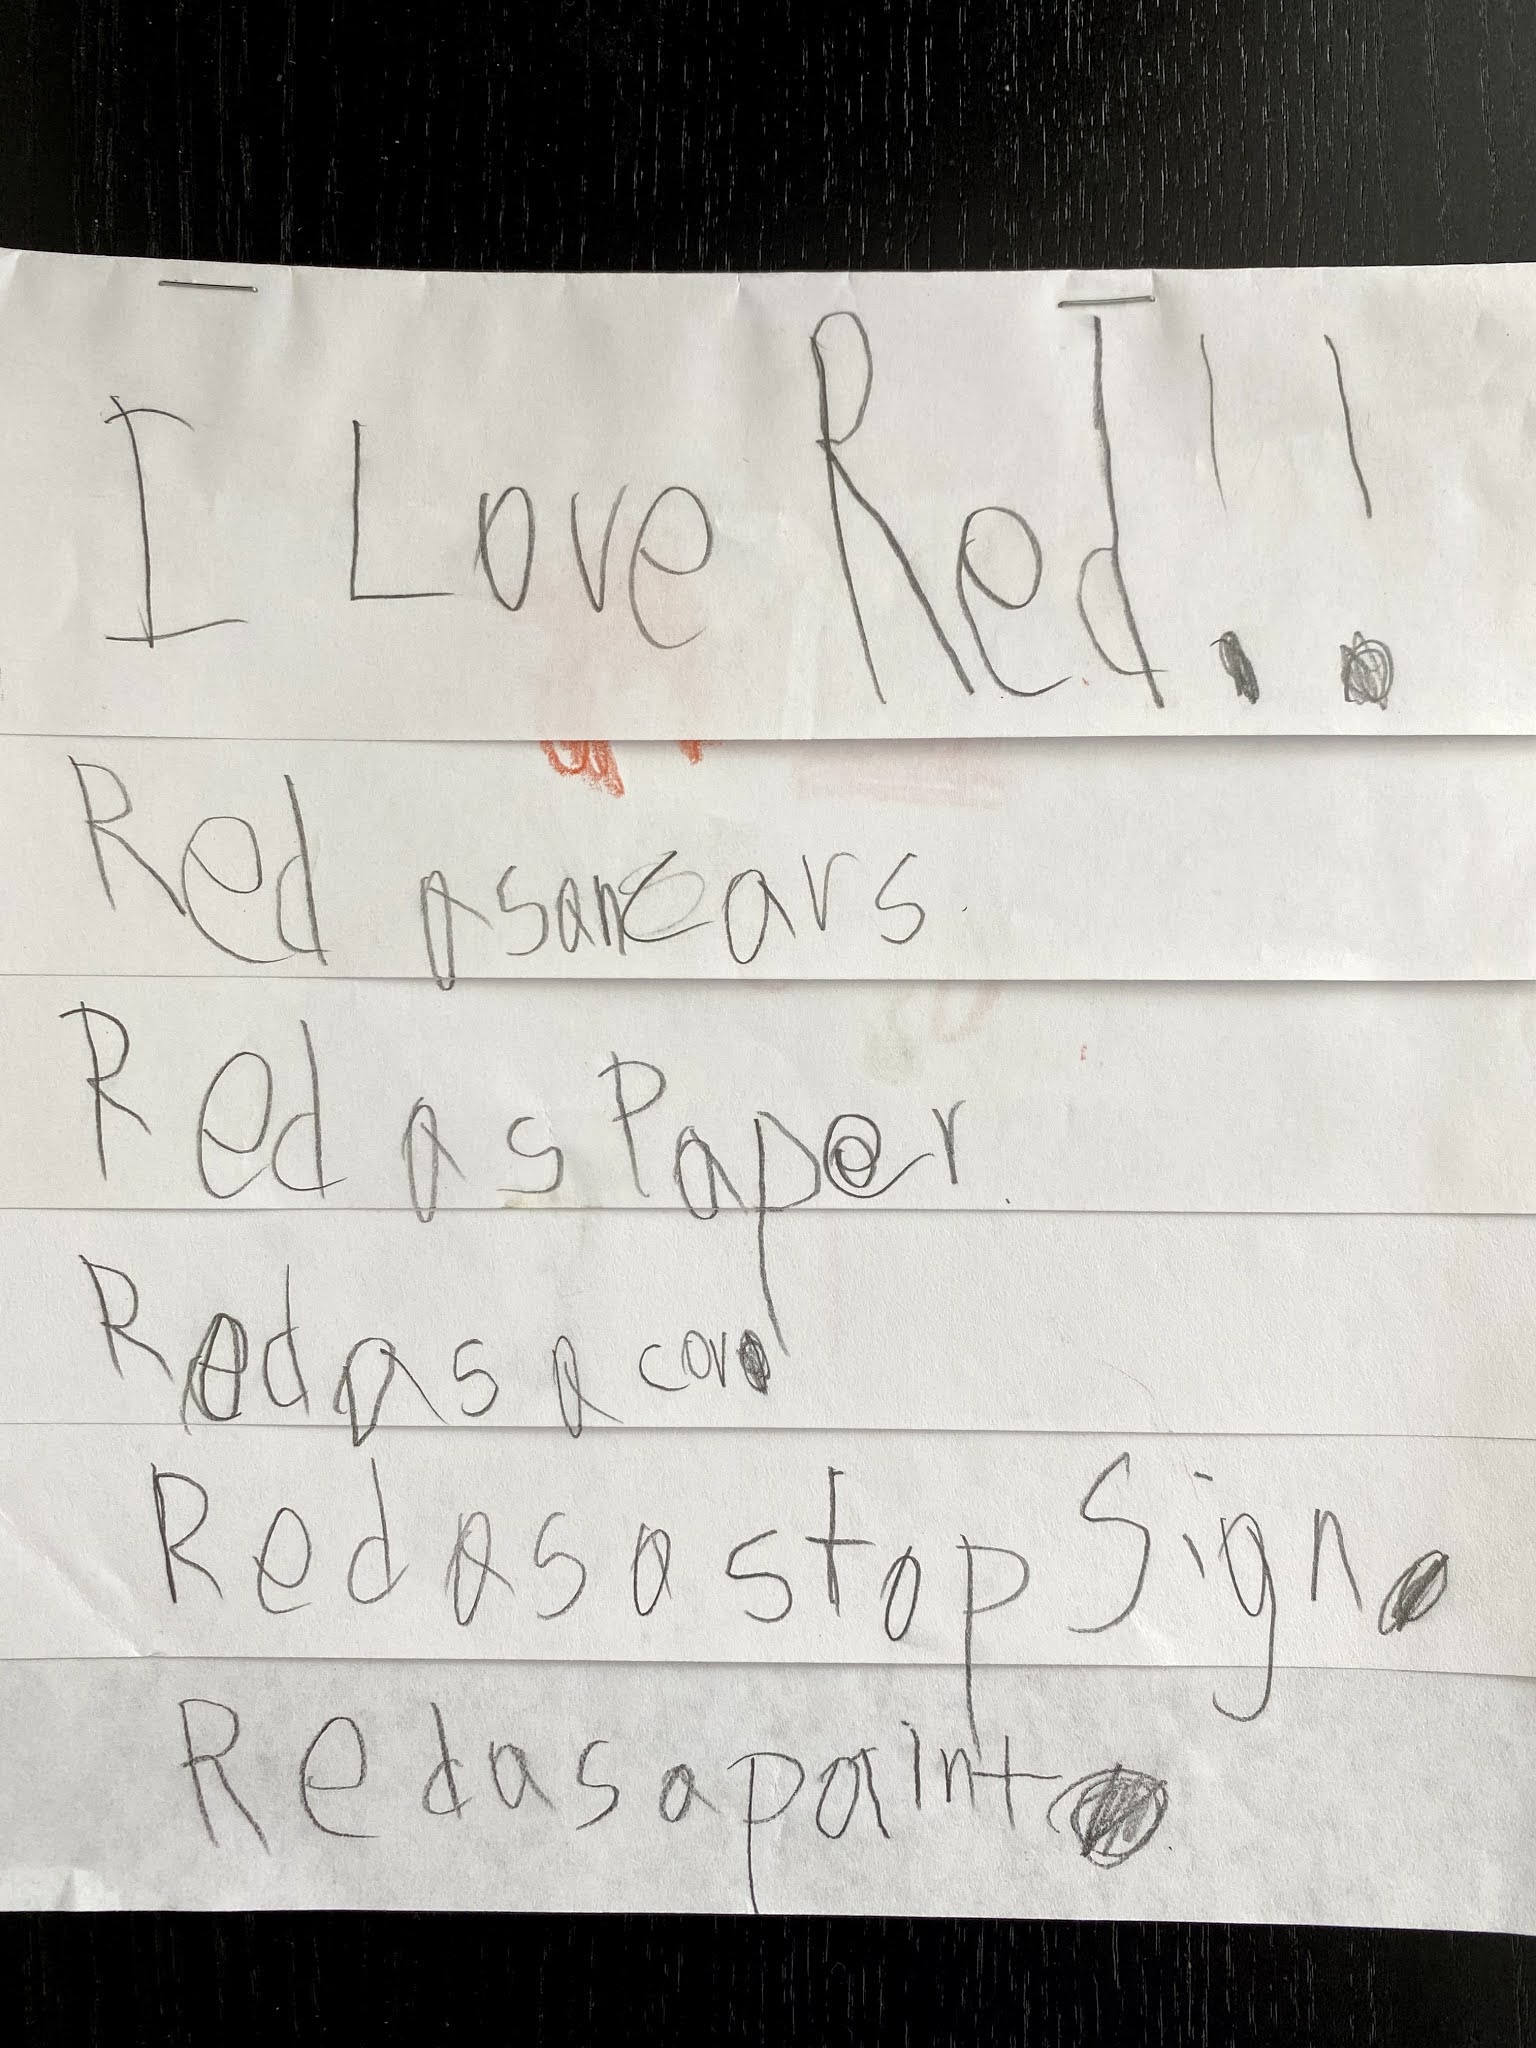 I Love Red!!
Red as an ears
Red as Paper.
Red as a car.
Red as a stop Sign.
Red as a paint.